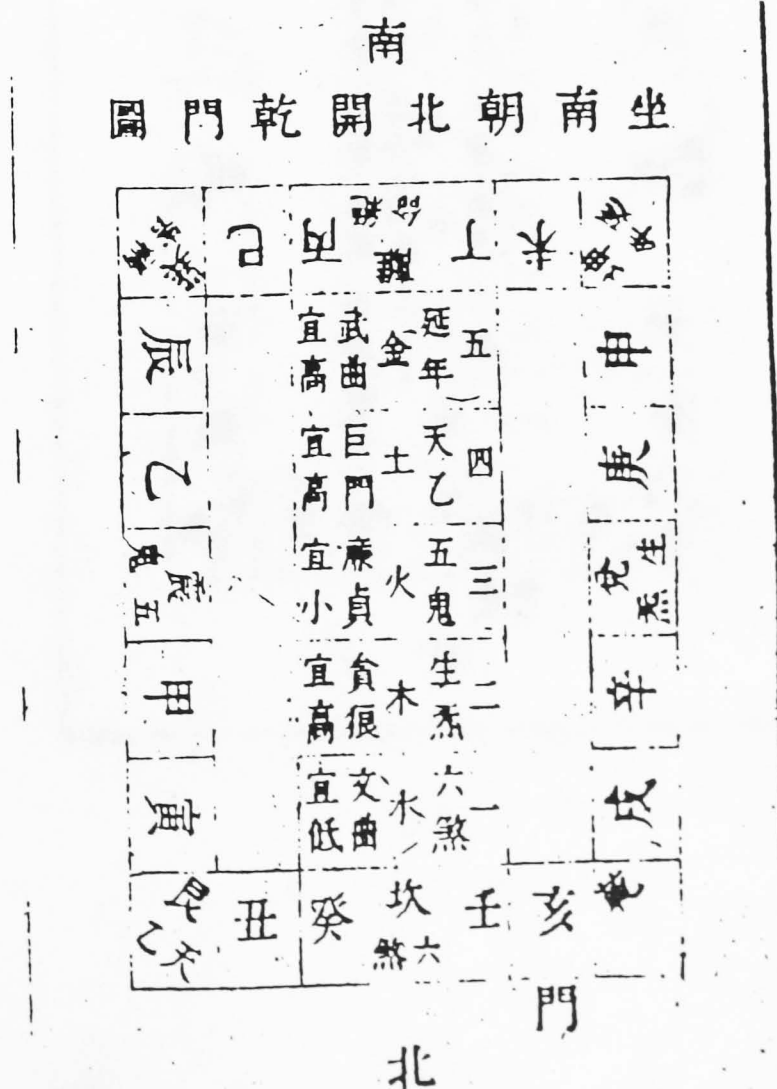 南
坐南朝北開乾門圖
未
丁
離
絕命
丙
巳
辰
乙
五鬼
甲
寅
申
庚
兌
生炁
辛
戌
五
延年
金
武曲
宜高
四
天乙
土
巨門
宜高
三
五鬼
火
廉貞
宜小
二
生炁
木
貪狼
宜高
一
六煞
水
文曲
宜低
乾
亥
壬
坎
六煞
癸
丑
艮
天乙
門
北